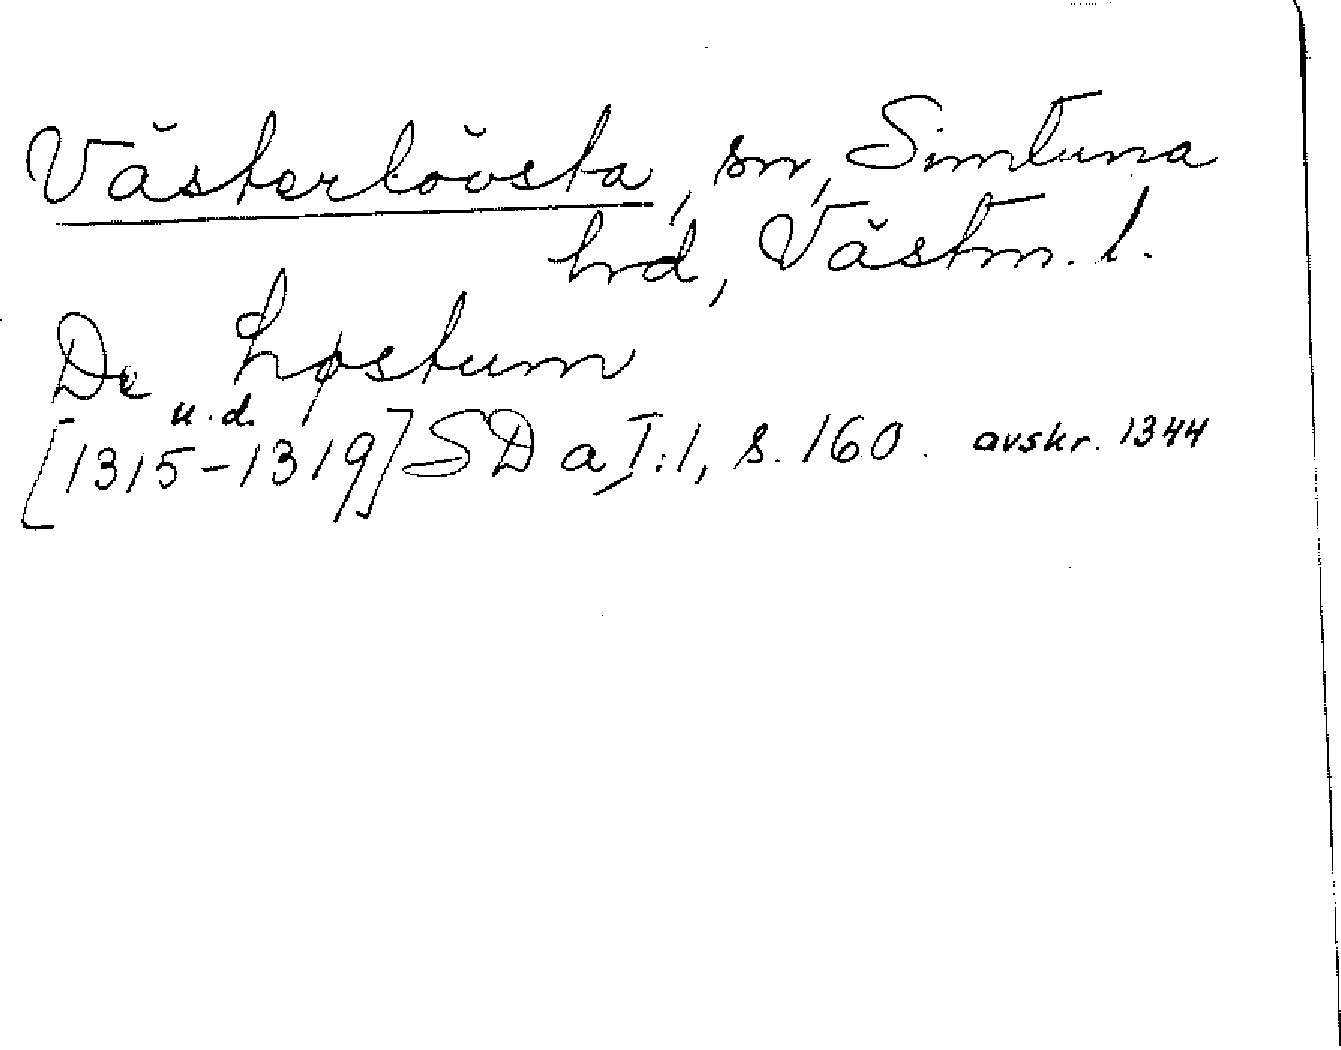 Västerlövsta, sn, Simtuna
hrd, Västm. l.
De Løstum
u.d.
[1315-1319] SD a I:1, s. 160. avskr. 1344